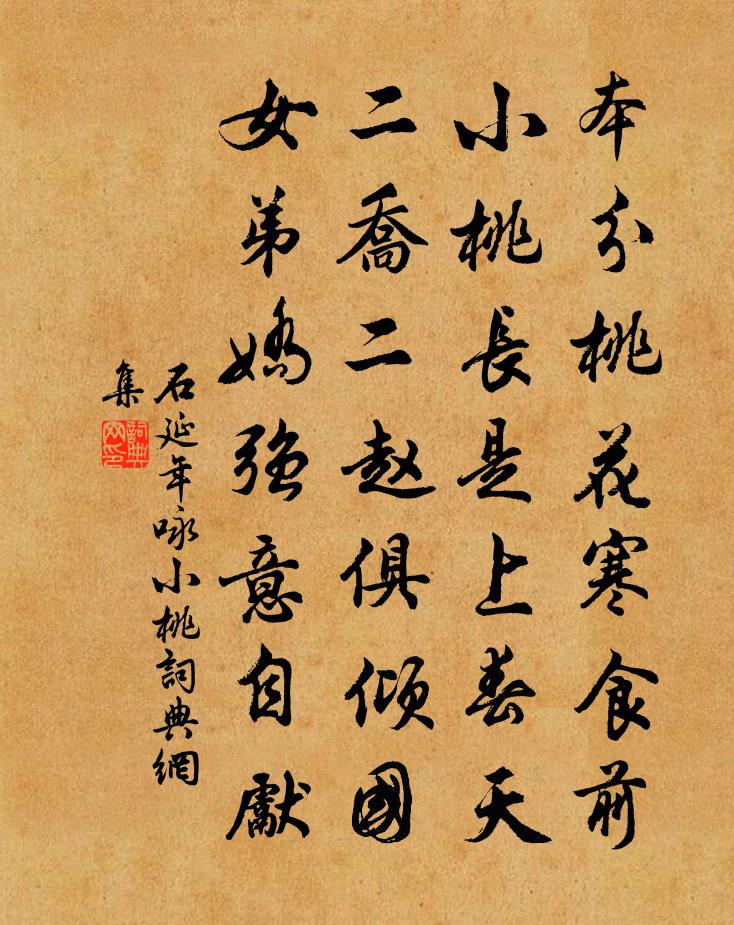 本分桃花寒食前
小桃長是上春天
二喬二赵俱傾國
女弟嬌強意自獻
石延年咏小桃詞典網
集
詞典網印